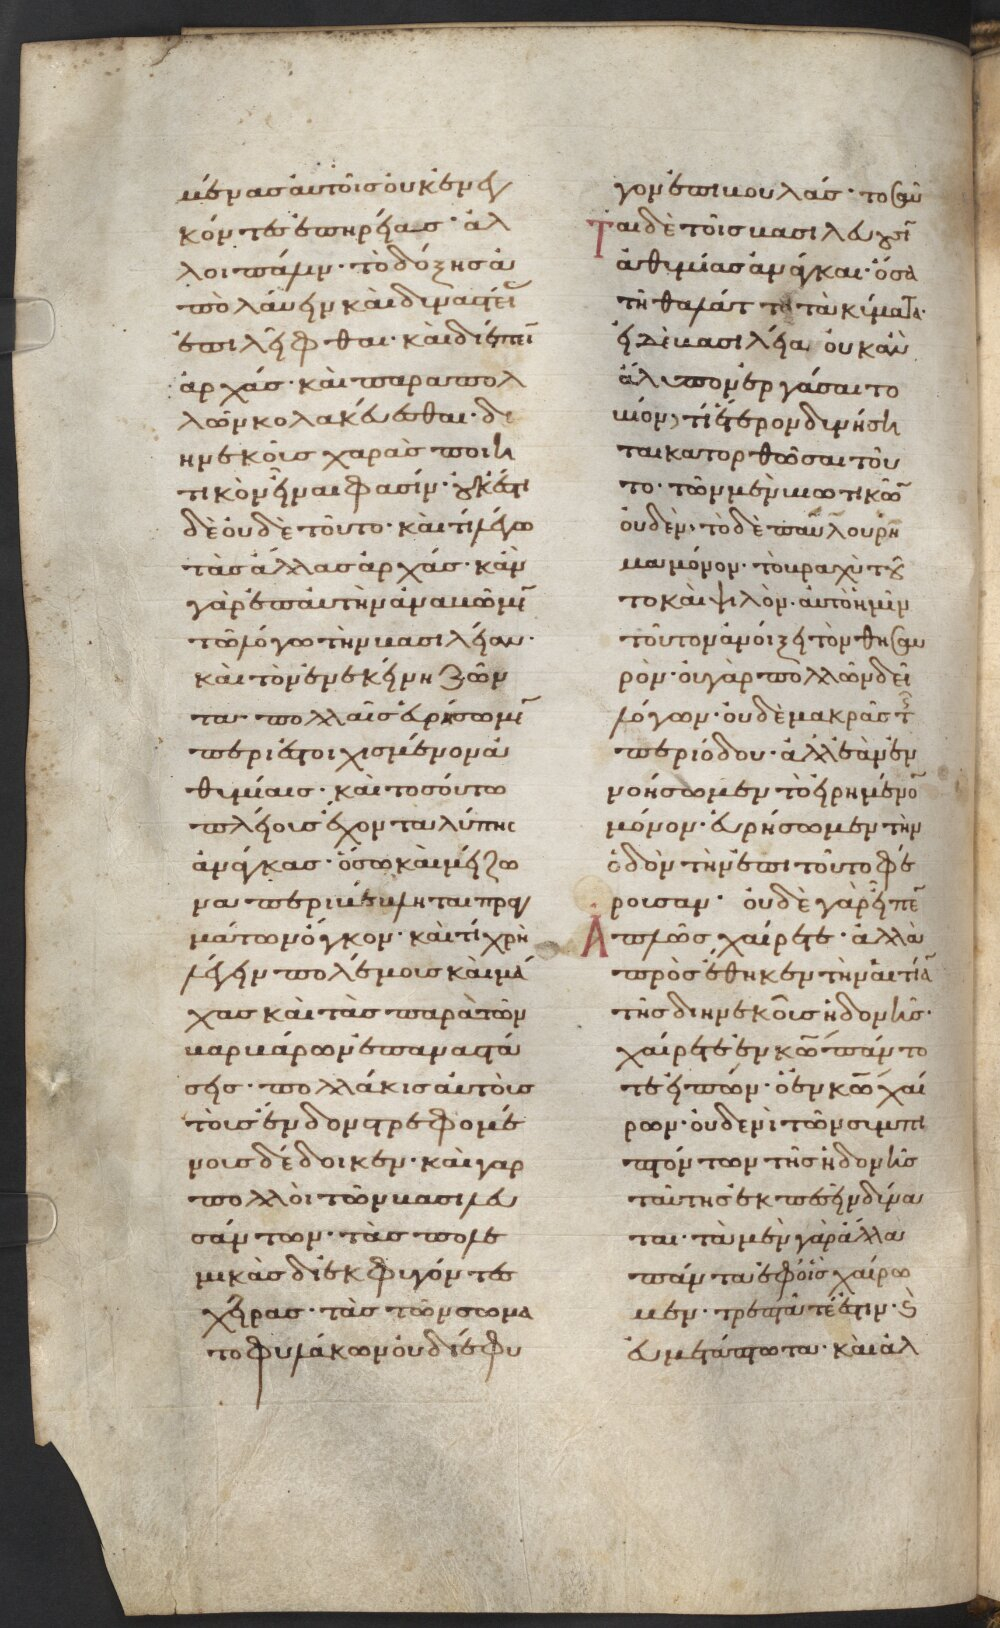 μένας αὐτοῖς οὐκ ἐνεγ
κόντες ἐπηρείας· ἄλ
λοι πάλιν· τὸ δόξης ἀ
πολάυειν καὶ δυναστεί
ἐπιλῆφθαι· καὶ διέπειν
ἀρχάς· καὶ παρα πολ
λῶν κολακέυεσθαι· δι
ηνεκοῦς χαρᾶς ποιη
τικὸν εἶναι φασίν· οὐκ ἔστι
δὲ οὐδὲ τοῦτο· καὶ τί λέγω
τὰς ἄλλας ἀρχάς· κἀν
γὰρ ἐπ αὐτὴν ἀναβῶμεν
τῶ λόγω τὴν βασιλείαν·
καὶ τὸν ἐν ἐκείνη ζῶν
τα· πολλαῖς ἑυρήσωμεν
περιεστοιχισμένον ἀ
θυμίαις· καὶ τοσούτω
πλείους ἔχοντα λύπης
ἀνάγκας· ὅσω καὶ μείζω
να περιβέβληται πραγ
μάτων ὄγκον· καὶ τί χρὴ
λέγειν πολέμους καὶ μά
χας καὶ τὰς παρὰ τῶν
βαρβάρων ἐπαναστά
σεις· πολλάκις αὐτοὺς
τοὺς ἔνδον τρεφομέ
νους δέδοικεν· καὶ γαρ
πολλοὶ τῶν βασιλευ
σάντων· τὰς πολε
μικὰς διεκφυγόντες
χεῖρας· τὰς τῶν σωμα
τοφυλάκων οὐ διέφυ
γον ἐπιβουλάς· τοσαῦ
ται δὲ τοῖς βασιλεῦσι
ἀθυμίας ἀνάγκαι· ὅσα
τῆ θαλάττη τὰ κύματα·
εἰ δὲ βασιλεία οὐκ ἂν
ἄλυπον ἐργάσαιτο
βίον, τί ἕτερον δυνήση
ται κατορθῶσαι τοῦ
το· τῶν μὲν βιωτικῶν
οὐδὲν· τὸ δὲ παύλου ρῆ
μα μόνον· τὸ βραχὺ του
το καὶ ψιλὸν· αὐτὸ ἡμῖν
τοῦτον ἀνοίξει τὸν θησαυ
ρὸν· οὐ γὰρ πολλῶν δεῖ
λόγων· οὐδὲ μακρᾶς τῆς
περιόδου· ἀλλ ἐὰν ἐν
νοήσωμεν τὸ εἰρημένον
μόνον· ἑυρήσωμεν τὴν
ὁδὸν τὴν ἐπι τοῦτο φέ
ρουσαν· οὐδὲ γὰρ εἶπεν
ἁπλῶς χαίρετε· ἀλλὰ
προσέθηκεν τὴν αἰτίαν
τῆς διηνεκοῦς ἡδονῆς·
χαίρετε ἐν κω πάντο
τε εἰπών· ὁ ἐν κω χαί
ρων· οὐδενὶ τῶν συμπι
πτόντων τῆς ἡδονῆς
ταύτης ἐκπεσεῖν δύνα
ται· τὰ μὲν γὰρ ἄλλα
πάντα ἐφ οἷς χαίρω
μεν· τρεπτά τέ ἐστιν· καὶ
ἐυμετάπτωτα· καὶ ἀλ